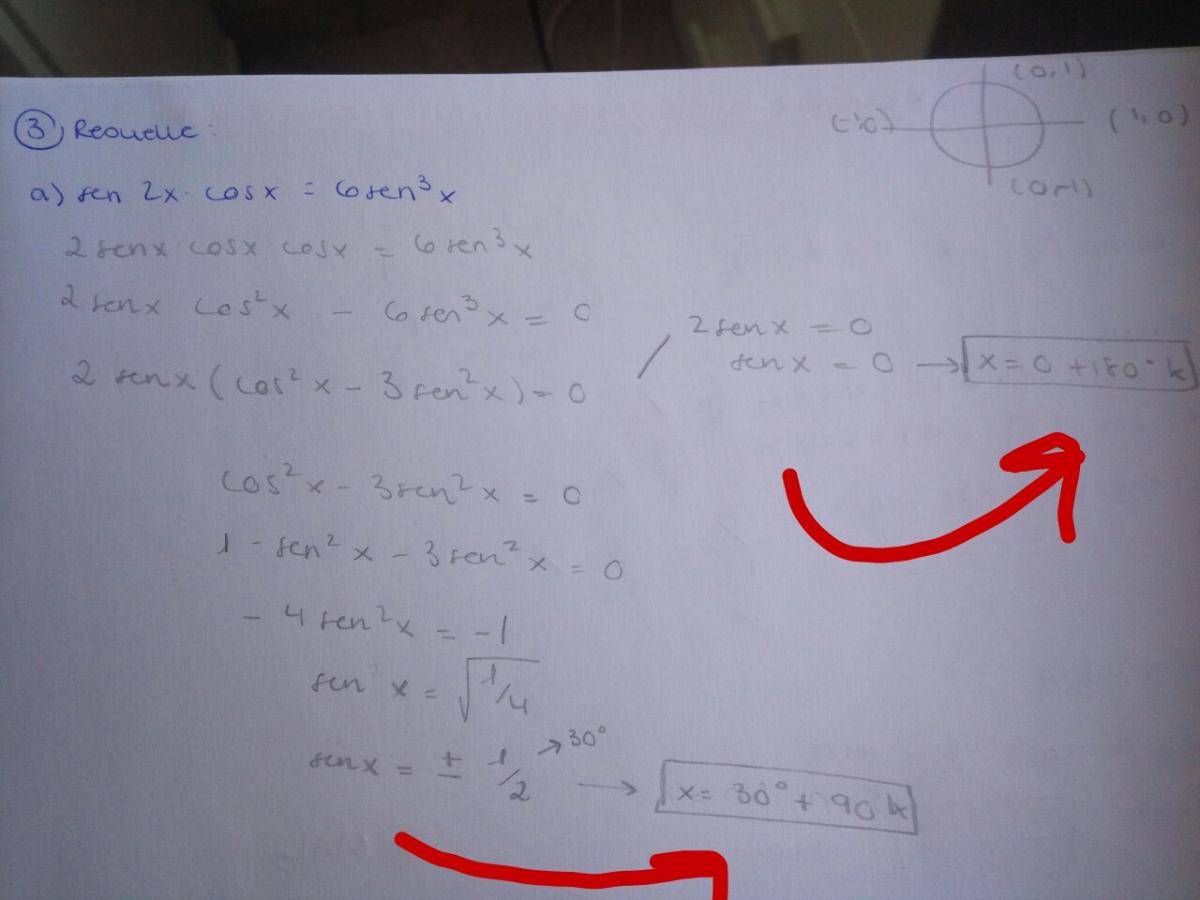 (0,1)
(-1,0) (1,0)
(0,-1)
③ Resuelve:
a) sen 2x · cosx = 6sen³x
2 senx cosx cosx = 6 sen³x
2 senx cos²x - 6 sen³x = 0
2 senx (cos²x - 3 sen²x) = 0 / 2 senx = 0
senx = 0 → x = 0 + 180° k
cos²x - 3sen²x = 0
1 - sen²x - 3sen²x = 0
- 4 sen²x = -1
sen x = √1/4
senx = ± 1/2 → 30° → x = 30° + 90 k